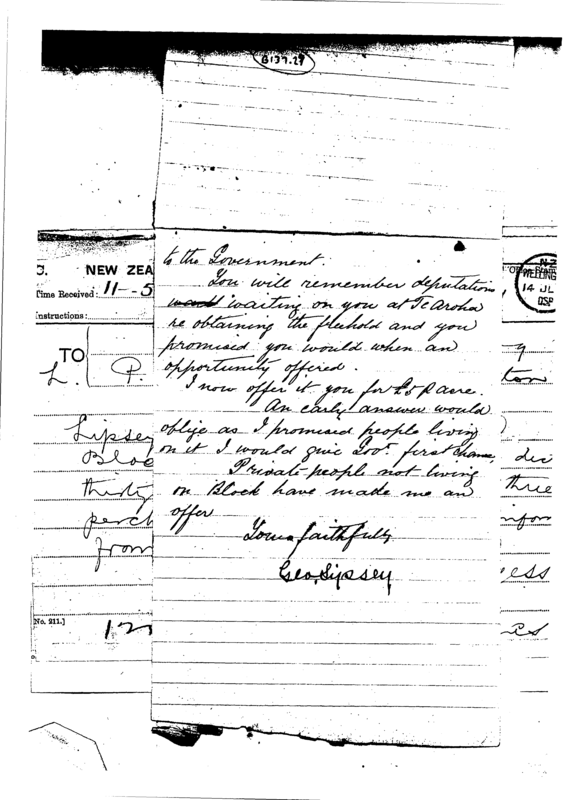 B137.29
to the Government.
You will remember deputations
waiting on you at Te Aroha
re obtaining the freehold and you
promised you would when an
opportunity offered.
I now offer it you for £5 P acre.
An early answer would
oblige as I promised people living
on it I would give Govt. first chance,
Private people not living
on Block have made me an
offer
Yours faithfully
Geo, Lipsey
NEW ZEA
Time Received: 11--5
Instructions:
TO
L. P.
Lipsey
Bloc
thirty
perch
from
No. 211.]
12
N.Z
WELLING
14 JL
y
ton
dis
three
infor
ess
es